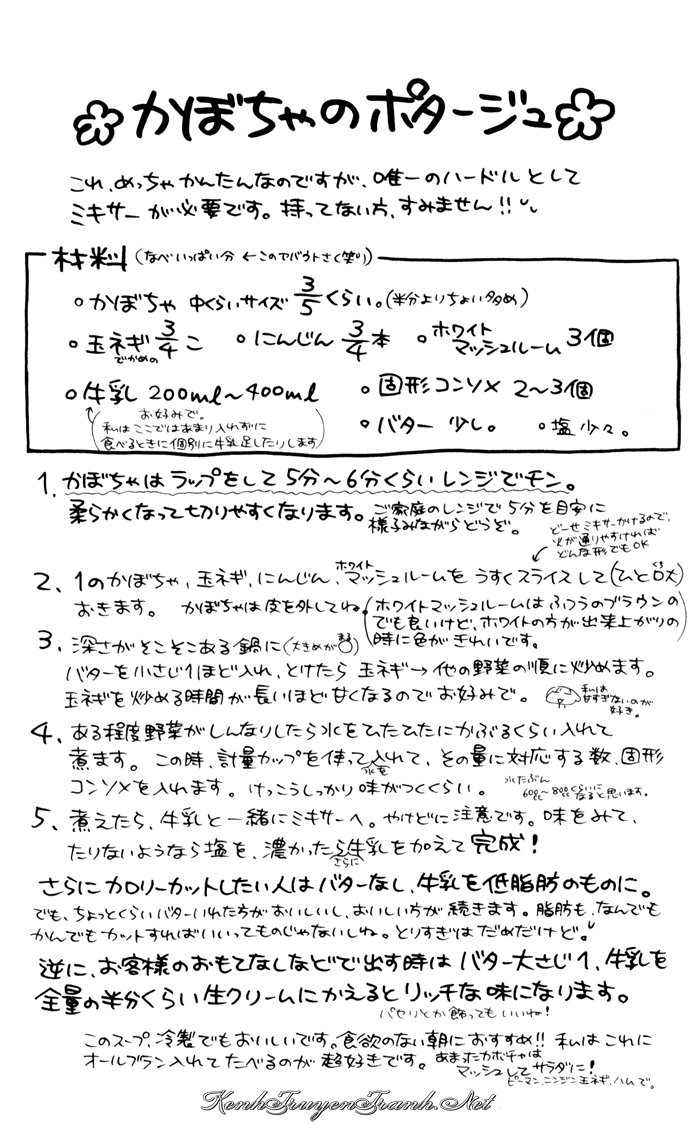 かぼちゃのポタージュ
これ、めっちゃかんたんなのですが、唯一のハードルとして
ミキサーが必要です。持ってない方、すみません!!
材料(なべいっぱい分 ←このアバウトさ(笑))
◦かぼちゃ 中くらいサイズ3/5くらい。(半分よりちょい多め)
◦玉ネギ3/4こ ◦にんじん3/4本 ◦ホワイトマッシュルーム3個
でかめの
◦牛乳 200ml〜400ml ◦固形コンソメ 2〜3個
お好みで。
私はここではあまり入れずに
食べるときに個別に牛乳足したりします
◦バター 少し。 ◦塩少々。
1. かぼちゃはラップをして5分〜6分くらいレンジでチン。
柔らかくなって切りやすくなります。
ご家庭のレンジで5分を目安に
様子みながらどうぞ。
どーせミキサーかけるので、
火が通りやすければ
どんな形でもOK
2. 1のかぼちゃ、玉ネギ、にんじん、ホワイトマッシュルームをうすくスライスして(ひと口大)
おきます。 かぼちゃは皮を外してね。
(ホワイトマッシュルームはふつうのブラウンの
でも良いけど、ホワイトの方が出来上がりの
時に色がきれいです。)
3. 深さがそこそこある鍋に(大きめが)
バターを小さじ1ほど入れ、とけたら玉ネギ→他の野菜の順に炒めます。
玉ネギを炒める時間が長いほど甘くなるのでお好みで。
私は
甘すぎないのが
好き。
4. ある程度野菜がしんなりしたら水をひたひたにかぶるくらい入れて
煮ます。この時、計量カップを使って水を入れて、その量に対応する数、固形
コンソメを入れます。けっこうしっかり味がつくくらい。
水たぶん
600cc〜800ccくらいに
なると思います。
5. 煮えたら、牛乳と一緒にミキサーへ。やけどに注意です。味をみて、
たりないようなら塩を、濃かったらさらに牛乳を加えて完成!
さらにカロリーカットしたい人はバターなし、牛乳を低脂肪のものに。
でも、ちょっとくらいバターいれた方がおいしいし、おいしい方が続きます。脂肪も、なんでも
かんでもカットすればいいってものじゃないしね。とりすぎはだめだけど。
逆に、お客様のおもてなしなどで出す時はバター大さじ1、牛乳を
全量の半分くらい生クリームにかえるとリッチな味になります。
パセリとか飾ってもいいね!
このスープ、冷製でもおいしいです。食欲のない朝におすすめ!! 私はこれに
オールブラン入れてたべるのが超好きです。
あまったカボチャは
マッシュしてサラダに!
ピーマン、ニンジン、玉ネギ、ハムで。
KenhTruyenTranh.Net